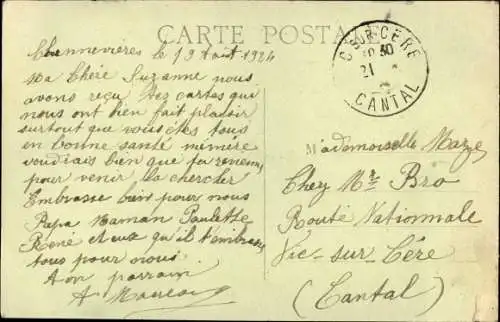 CARTE POSTALE
Chennevières le 19 Août 1924
Ma Chère Suzanne nous
avons reçu tes cartes qui
nous ont bien fait plaisir
surtout que vous êtes tous
en bonne santé mémère
voudrais bien que tu reviens
pour venir la chercher
Embrasse bien pour nous
Papa Maman Paulette
René et eux qu'il t'embrasse
tous pour nous.
Ton parrain
A
SUR-CÈRE
30
21
CANTAL
Mademoiselle
Chez Mr Bro
Route Nationnale
Vic-sur-Cère
(Cantal)